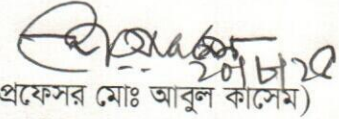 ২০/৮/২৫
প্রফেসর মোঃ আবুল কাসেম)